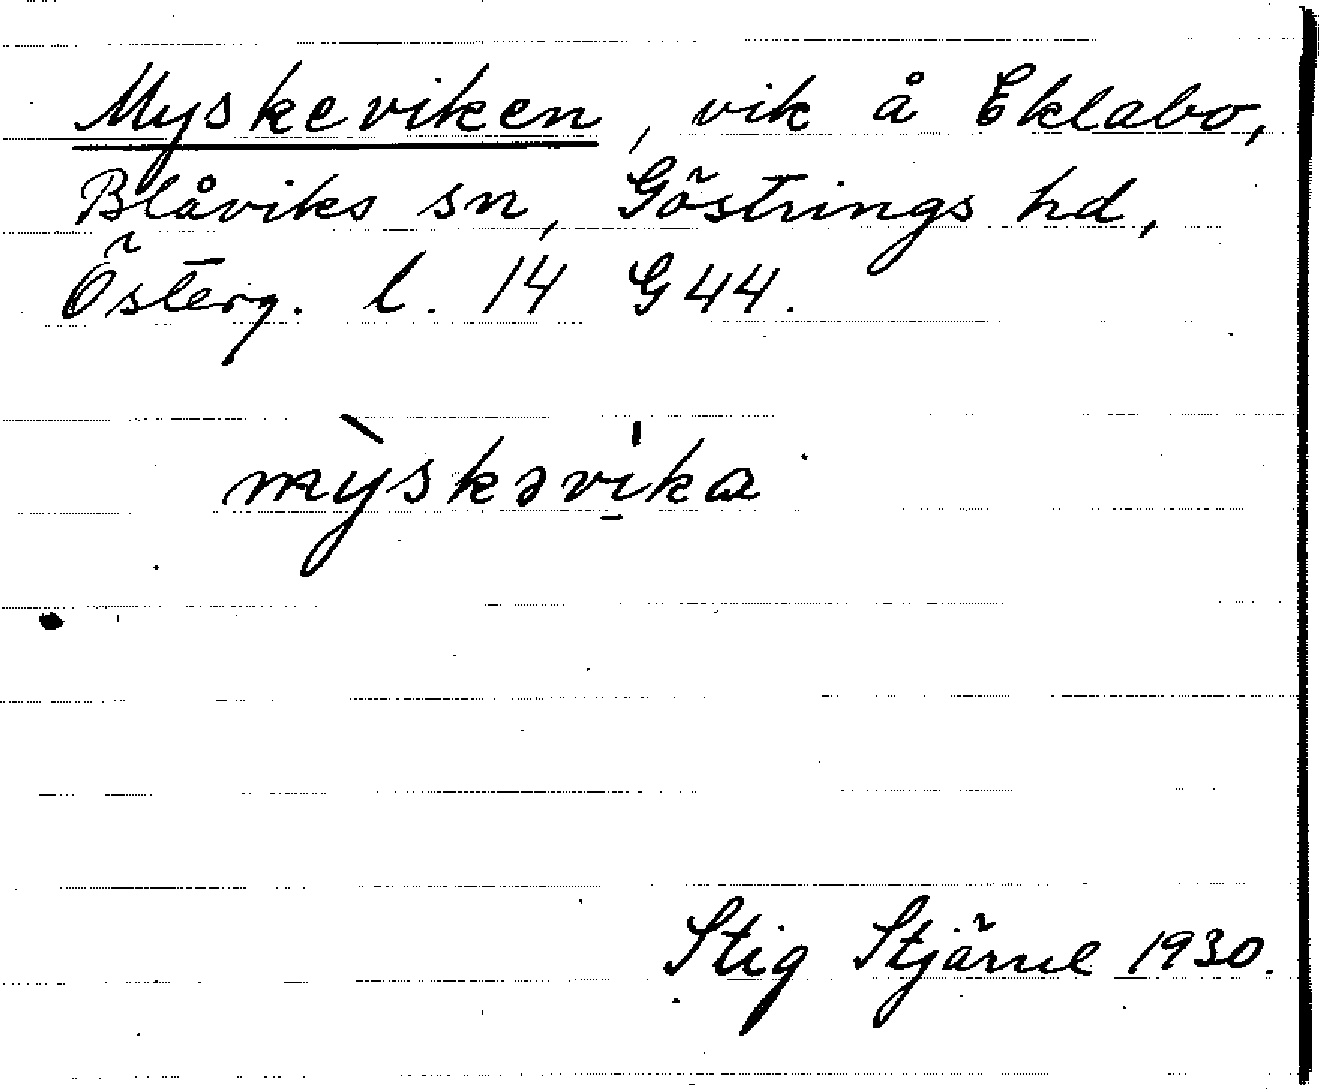 Myskeviken, vik å Eklabo,
Blåviks sn, Göstrings hd,
Österg. l. 14 G 44.
mỳskəvi̱ˈka
Stig Stjärnel 1930.